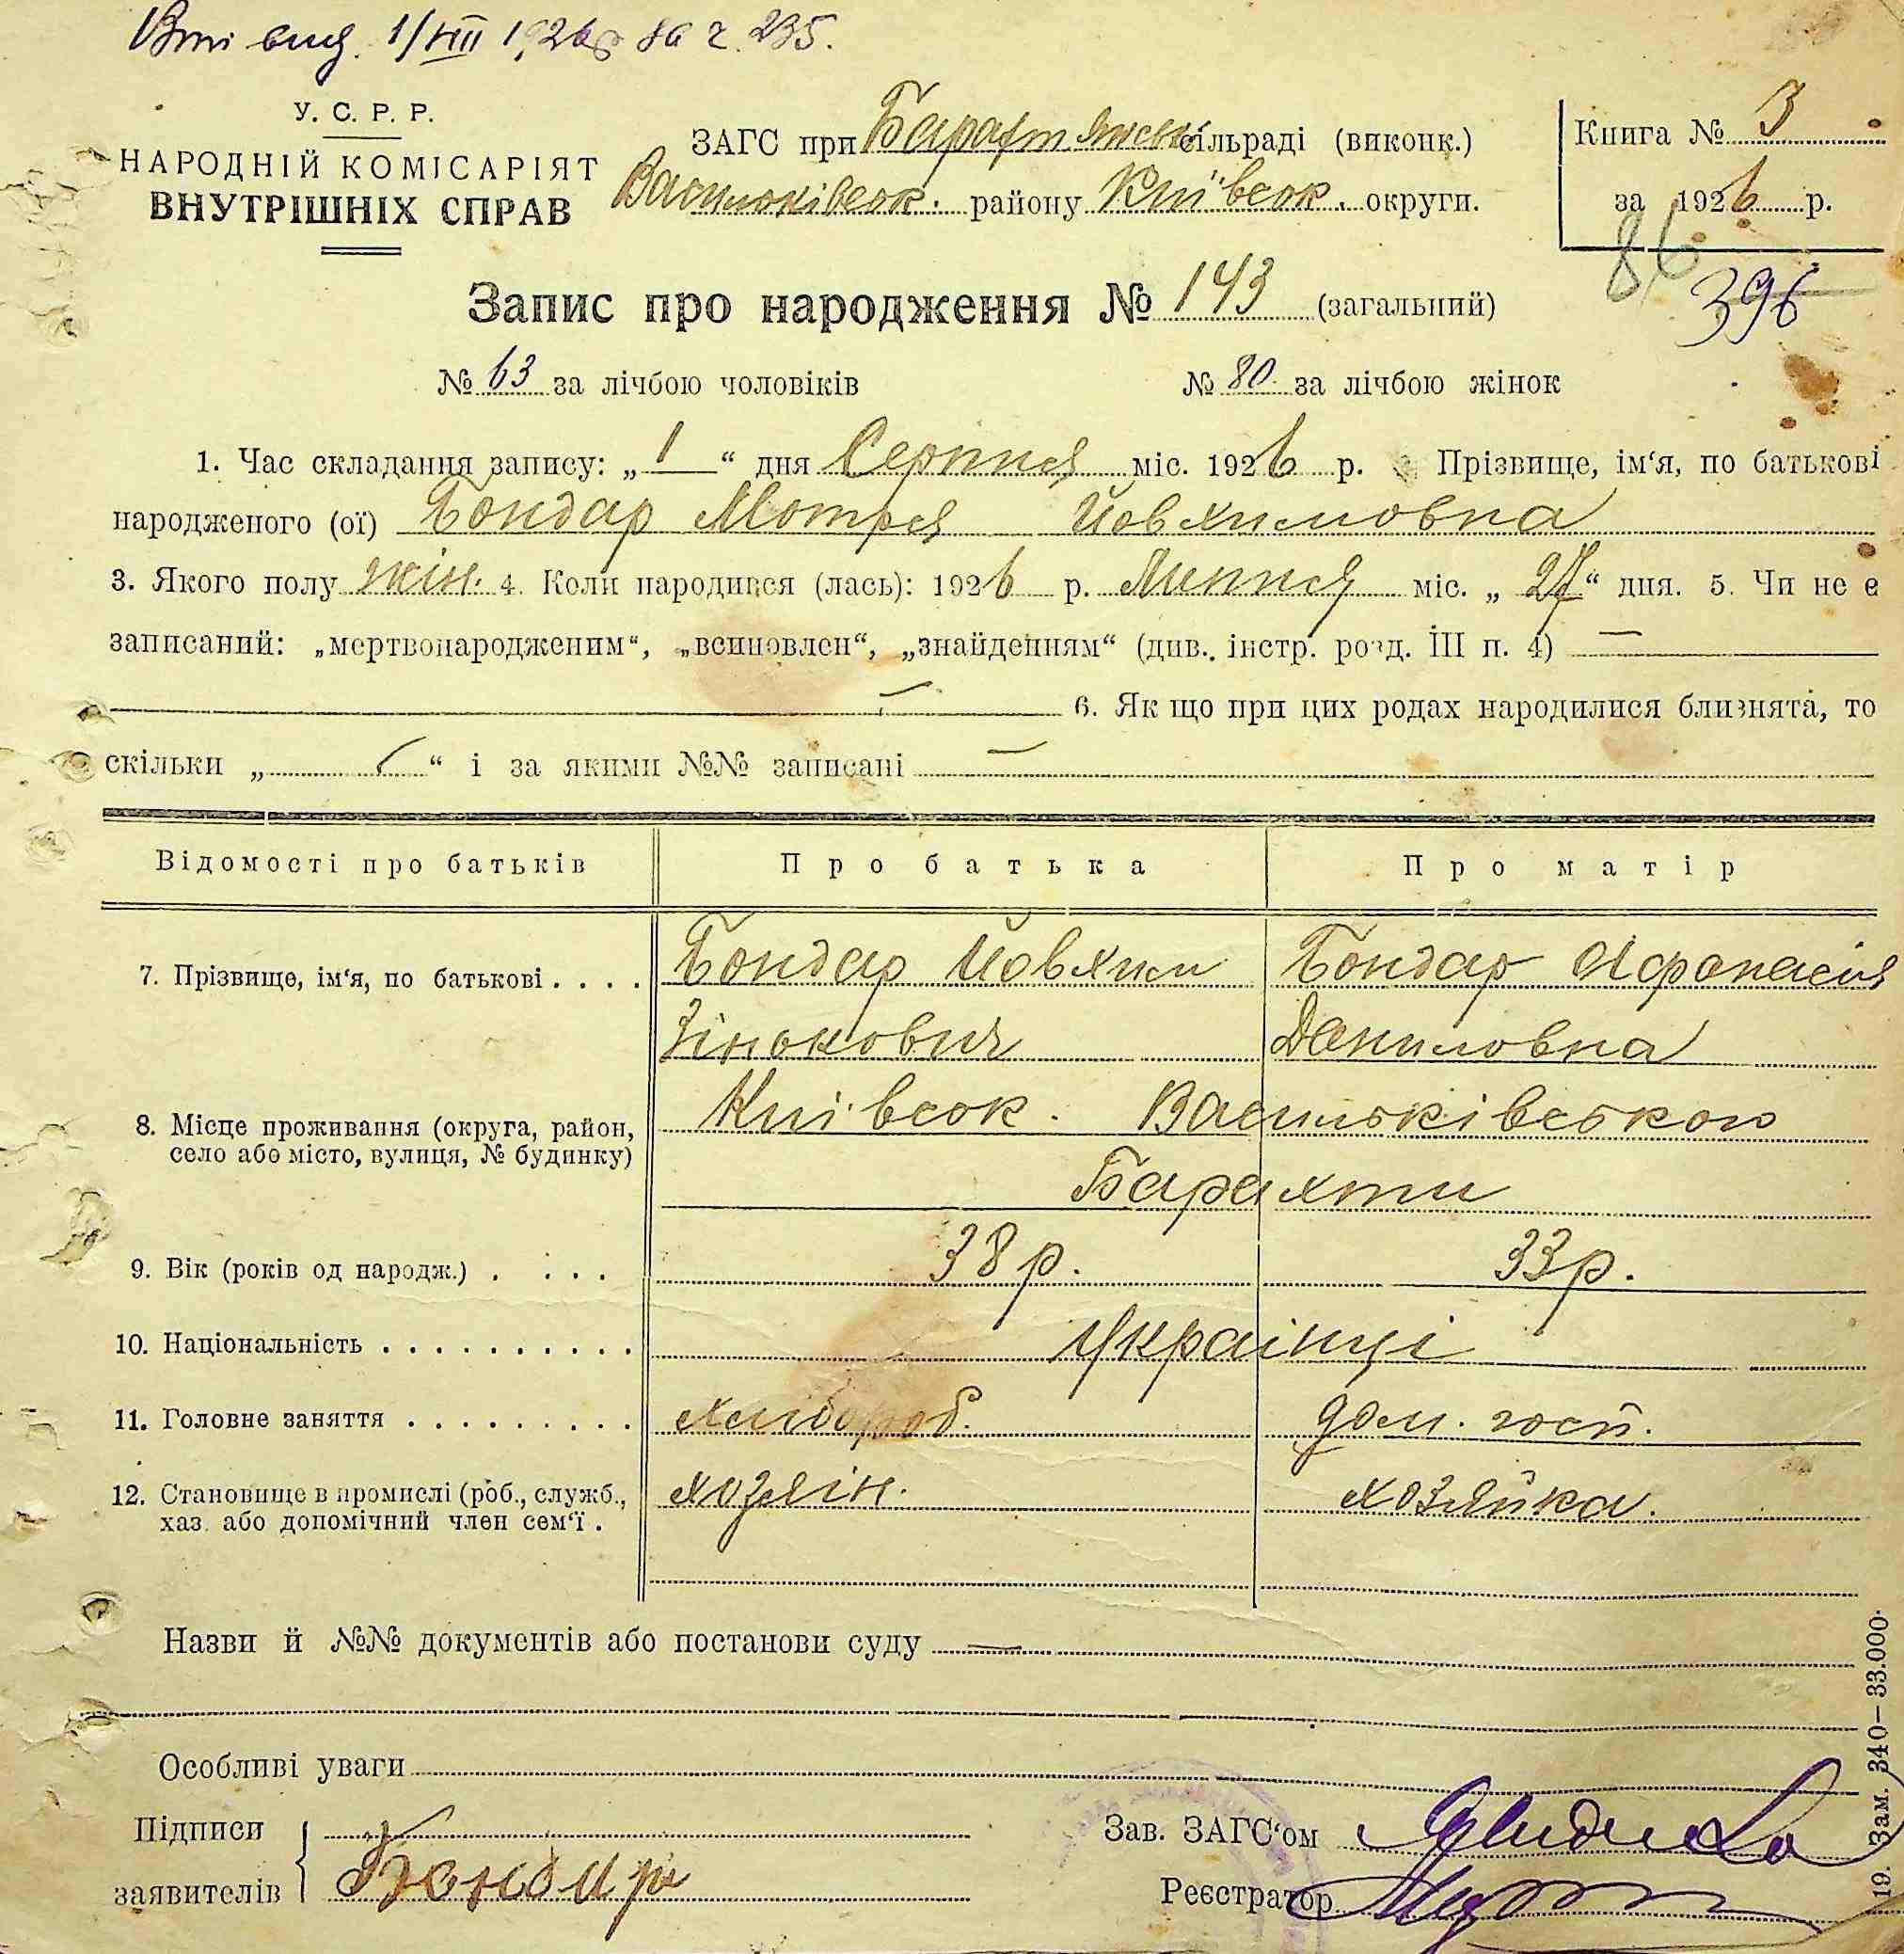 вид. 1/VIII 1926 р за ч. 235.
У. С. Р. Р.
НАРОДНІЙ КОМІСАРІЯТ
ВНУТРІШНІХ СПРАВ
ЗАГС при Барахтянськ сільраді (виконк.)
Васильківськ. району Київськ. округи.
Книга № 3
за 1926 р.
86
396
Запис про народження № 143 (загальний)
№ 63 за лічбою чоловіків № 80 за лічбою жінок
1. Час складання запису: „1“ дня Серпня міс. 1926 р. Прізвище, ім‘я, по батькові
народженого (ої) Бондар Мотря Йовхимовна
3. Якого полу жін. 4. Коли народився (лась): 1926 р. Липня міс. „27“ дня. 5. Чи не є
записаний: „мертвонародженим“, „всиновлен“, „знайденням“ (див. інстр. розд. III п. 4) —
— 6. Як що при цих родах народилися близнята, то
скільки „ — “ і за якими №№ записані —
Відомості про батьків Про батька Про матір
7. Прізвище, ім‘я, по батькові . . . . Бондар Йовхим Бондар Афонасія
Зінькович Даниловна
8. Місце проживання (округа, район, Київськ. Васильківського
село або місто, вулиця, № будинку)
Барахти
9. Вік (років од народж.) . . . . 38 р. 33 р.
10. Національність . . . . . . . . . . Українці
11. Головне заняття . . . . . . . . . хлібороб. дом. госп.
12. Становище в промислі (роб., служб., хозяін. хозяйка.
хаз. або допомічний член сем‘ї .
Назви й №№ документів або постанови суду —
Особливі уваги
Підписи
заявителів Бондар
Зав. ЗАГС‘ом
Реєстратор
19. Зам. 340—33.000.